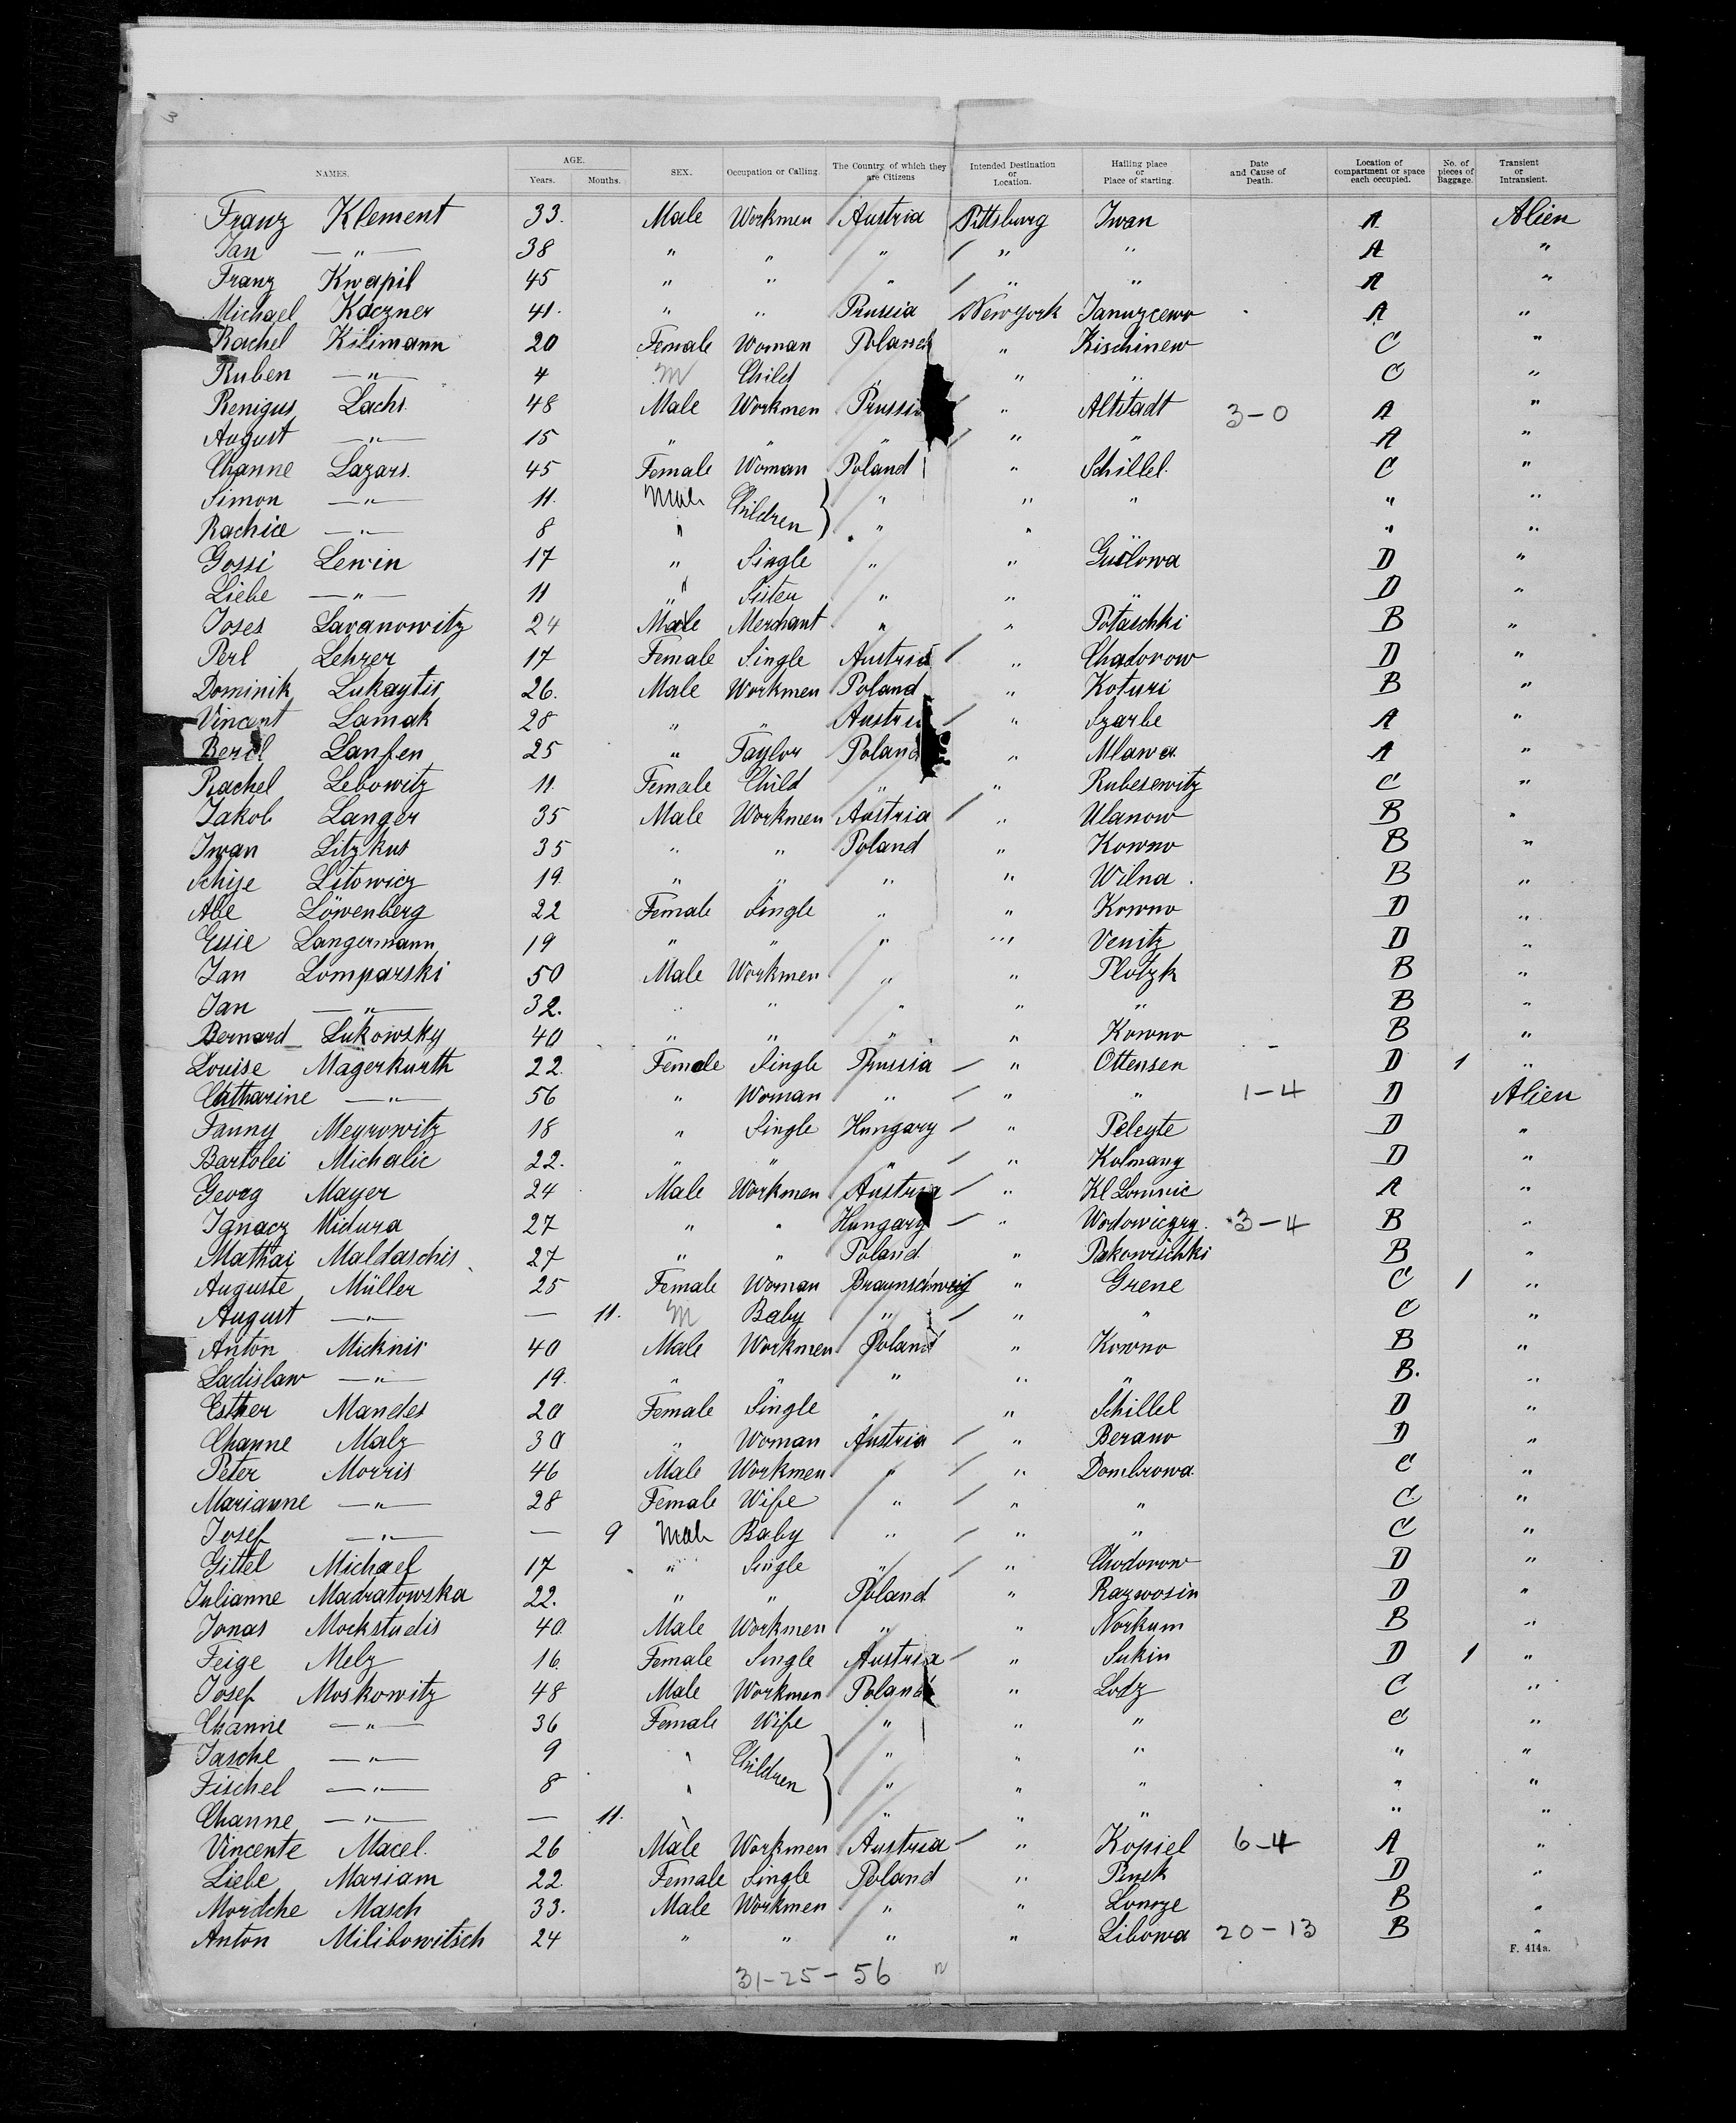 3
NAMES. AGE. Years. Months. SEX. Occupation or Calling. The Country of which they are Citizens Intended Destination or Location. Hailing place or Place of starting. Date and Cause of Death. Location of compartment or space each occupied. No. of pieces of Baggage. Transient or Intransient.
Franz Klement 33. Male Workmen Austria Pittsburg Iwan A Alien
Jan —"— 38 " " " " " A "
Franz Kwapil 45 " " " " " A "
Michael Kaczner 41. " " Prussia New York Januzcewo A "
Rachel Kilimann 20 Female Woman Poland " Kischinew C "
Ruben —"— 4 M Child " " " C "
Renigus Lachs 48 Male Workmen Prussia " Altstadt 3-0 A "
August —"— 15 " " " " " A "
Channe Lazars. 45 Female Woman Poland " Schillel. C "
Simon —"— 11. Male Children " " " " "
Rachice —"— 8 " " " " " "
Gossi Lewin 17 " Single " " D "
Liebe —"— 11 " Sister " " " D "
Joses Lavanowitz 24 Male Merchant " " Potaschki B "
Perl Lehrer 17 Female Single Austria " Chadorow D "
Dominik Lukaytis 26. Male Workmen Poland " Koturi B "
Vincent Lamak 28 " " Austria " Szarbe A "
Berel Lanfen 25 " Taylor Poland " Mlawa A "
Rachel Lebowitz 11. Female Child " " Rubesewitz C "
Jakob Langer 35 Male Workmen Austria " Ulanow B "
Iwan Litzkus 35 " " Poland " Kowno B "
Schije Litowicz 19. " " " " Wilna. B "
Abe Löwenberg 22 Female Single " " Kowno D "
Essie Langermann 19 " " " " Venitz D "
Jan Lomparski 50 Male Workmen " " Plotzk B "
Jan —"— 32. " " " " " B "
Bernard Lukowsky 40 " " " " Kowno B "
Louise Magerkurth 22. Female Single Prussia " Ottensen D 1 "
Catharine —"— 56 " Woman " " " 1-4 D Alien
Fanny Meyrowitz 18 " Single Hungary " Peleyte D "
Bartolei Michalic 22. " " " " Kolmany D "
Georg Mayer 24 Male Workmen Austria " Kl Lomnic A "
Ignacz Midura 27 " " Hungary " Wodowiczry. 3-4 B "
Mathai Maldaschis 27 " " Poland " Pakowischki B "
Auguste Müller 25 Female Woman Braunschweig " Grene C 1 "
August —"— — 11. M Baby " " " C "
Anton Micknis 40 Male Workmen Poland " Kowno B "
Ladislaw —"— 19. " " " " " B. "
Esther Mandes 20 Female Single " " Schillel D "
Channe Malz 30 " Woman Austria " Berano D "
Peter Morris 46 Male Workmen " " Dombrowa. C "
Marianne —"— 28 Female Wife " " " C "
Josef —"— — 9 Male Baby " " " C "
Gittel Michael 17 " Single " " Chodorow D "
Julianne Madratowska 22. " " Poland " Razwosin D "
Jonas Mockstudis 40. Male Workmen " " Norkum B "
Feige Melz 16. Female Single Austria " Sukin D 1 "
Josef Moskowitz 48 Male Workmen Poland " Lodz C "
Channe —"— 36 Female Wife " " " C "
Jasche —"— 9 " Children " " " " "
Fischel —"— 8 " " " " " "
Channe —"— — 11. " " " " " "
Vincente Macel. 26 Male Workmen Austria " Kopiel 6-4 A "
Liebe Mariam 22. Female Single Poland " Pinsk D "
Mordche Masch 33. Male Workmen " " Lomze B "
Anton Milibowitsch 24 " " " " Libowa 20-13 B "
F. 414a.
31-25-56 n